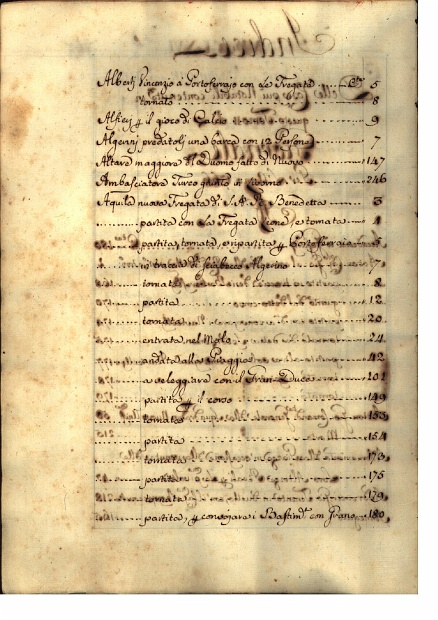 Indice
Alberti Vincenzio a Portoferraio con Le Fregate 5
tornato 8
Alfieri p il gioco di Calcio 9
Algerini predatosj una barca con 12 Persone 7
Altare maggiore del Duomo fatto di Nuovo 147
Ambasciatore Turco giunto in Livorno 246
Aquila nuova Fregata di S.A.R. Benedetta 3
partita con La Fregata e tornata 4
partita, tornata, e ripartita p Portoferraio 5
in traccia di sciabecco Algerino 7
tornata 8
partita 12
tornata 20
entrata nel Molo 24
andata alla Spiaggia 42
a veleggiare con il Gran Duca 101
partita p il corso 149
tornata 153
partita 154
tornata 173
partita 175
tornata 179
partita, p convojare i Bastimti con Grano 180